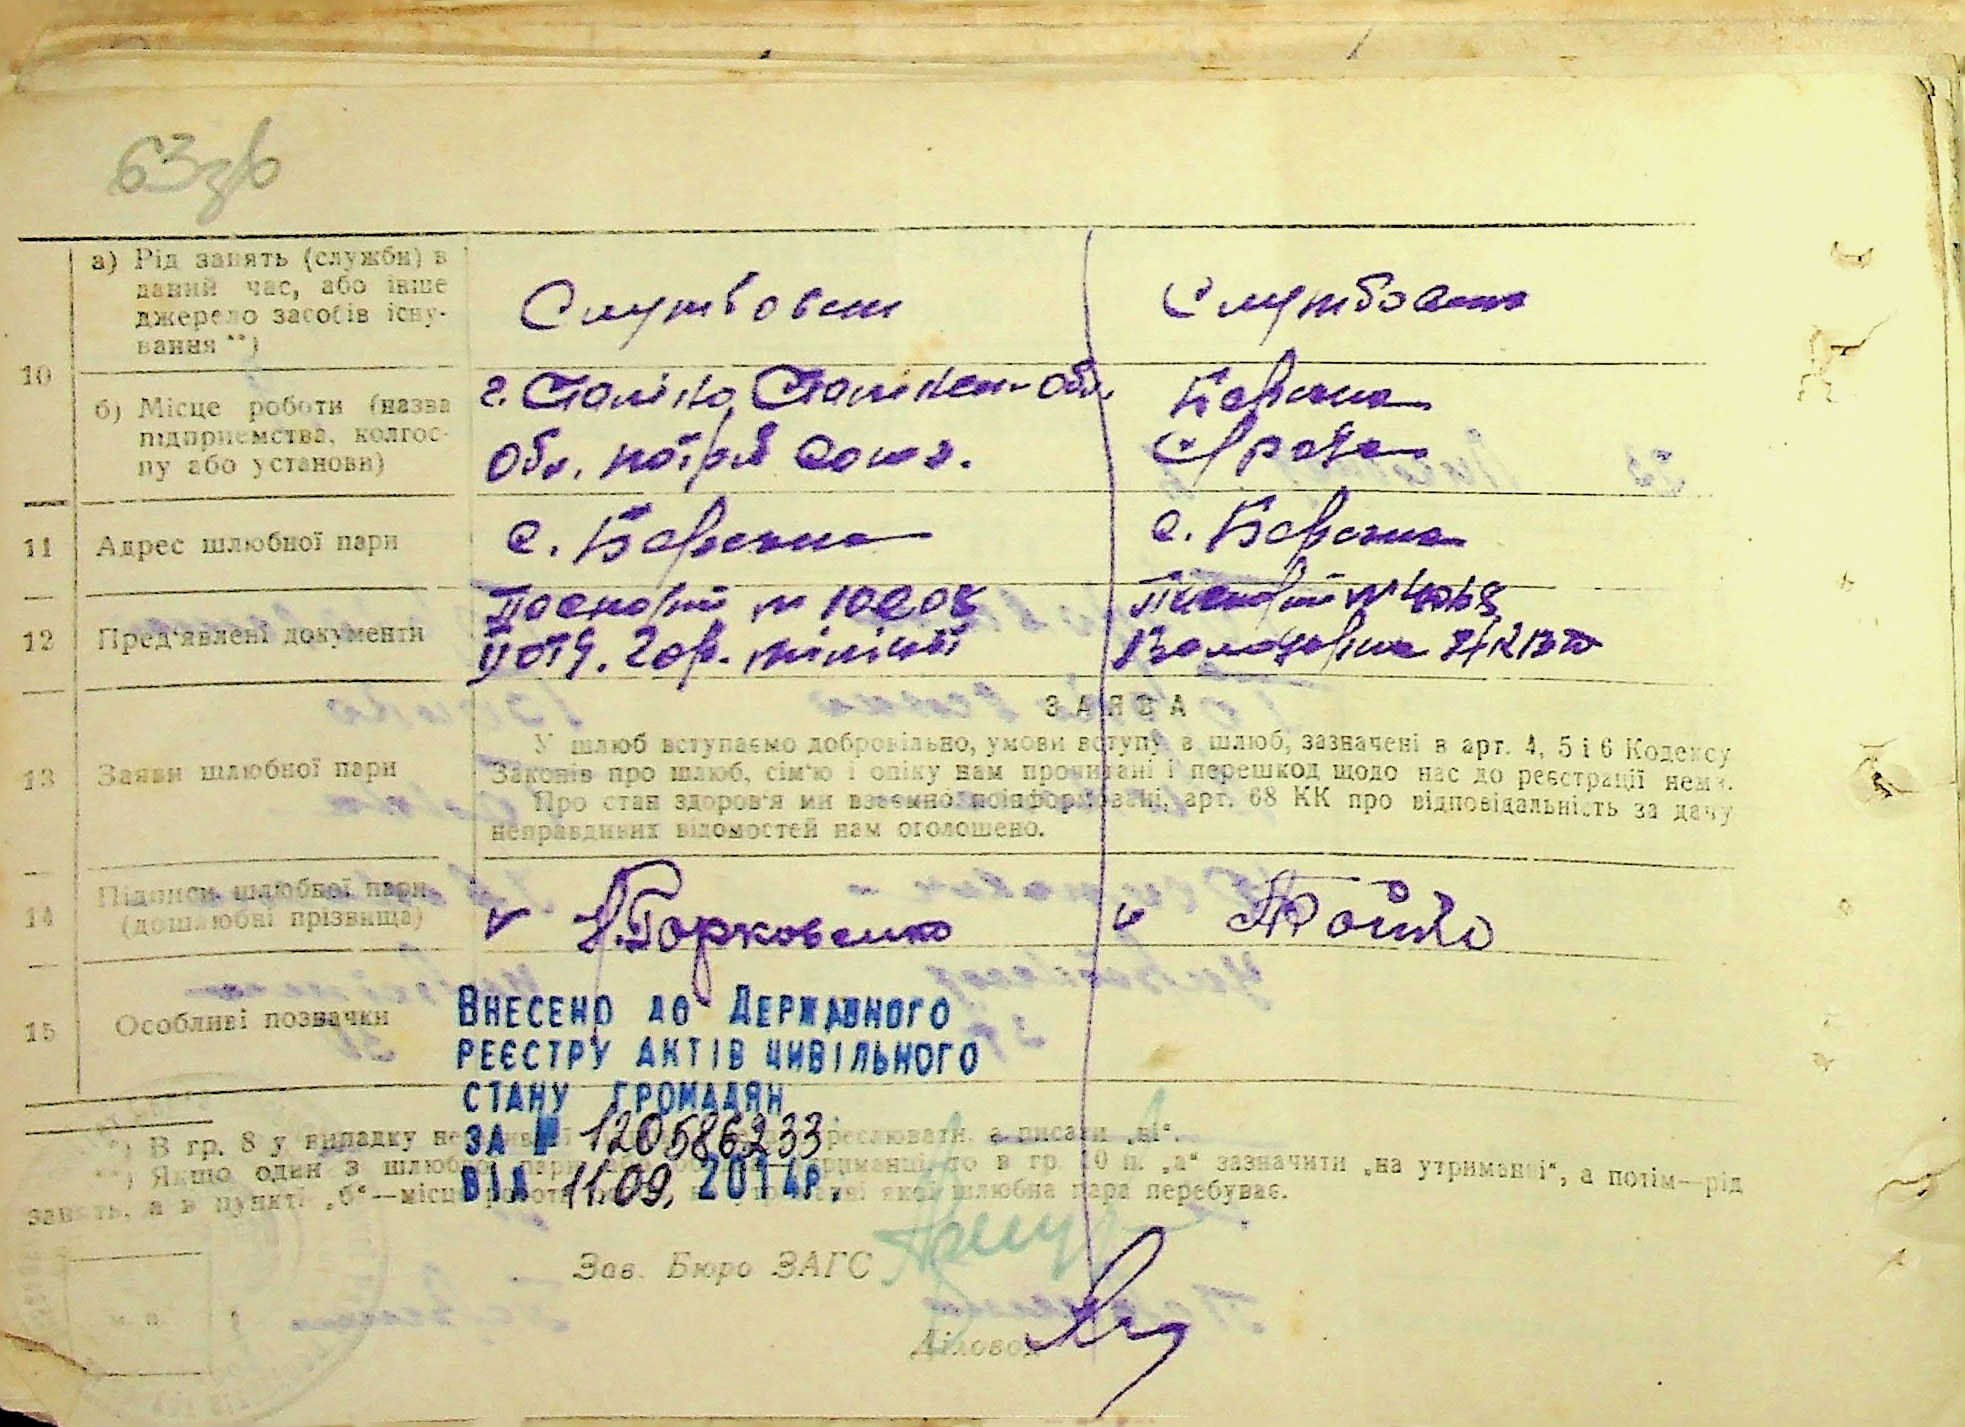 63зв
10
а) Рід занять (служби) в
даний час, або інше
джерело засобів існу-
вання **)
Службовец
Службов
б) Місце роботи (назва
підприємства, колгос-
пу або установи)
г. Сталіно, Сталінськ. обл.
Обл. потріб союз.
Березна
11
Адрес шлюбної пари
с. Березна
с. Березна
12
Пред'явлені документи
Паспорт №
гор. міліції
Паспорт №
13
Заяви шлюбної пари
ЗАЯВА
У шлюб вступаємо добровільно, умови вступу в шлюб, зазначені в арт. 4, 5 і 6 Кодексу
Законів про шлюб, сім'ю і опіку нам прочитані і перешкод щодо нас до реєстрації нема.
Про стан здоров'я ми взаємно поінформовані, арт. 68 КК про відповідальність за дачу
неправдивих відомостей нам оголошено.
14
Підписи шлюбної пари
(дошлюбні прізвища)
Горковенко
Бойко
15
Особливі позначки
ВНЕСЕНО ДО ДЕРЖАВНОГО
РЕЄСТРУ АКТІВ ЦИВІЛЬНОГО
СТАНУ ГРОМАДЯН
ЗА № 120586233
ВІД 11.09. 2014р.
*) В гр. 8 у випадку креслювати, а писати „ні“.
**) Якщо один з шлюбної пари то в гр. 10 п. „а“ зазначити „на утриманні“, а потім—рід
занять, а в пункті „б“—місце роботи якої шлюбна пара перебуває.
Зав. Бюро ЗАГС
м. п.
Діловод